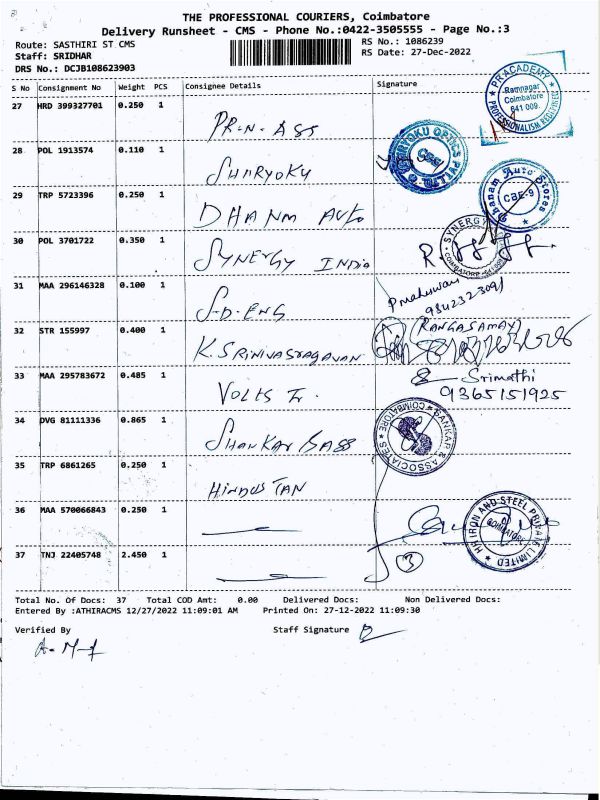 THE PROFESSIONAL COURIERS, Coimbatore
Delivery Runsheet - CMS - Phone No.:0422-3505555 - Page No.:3
Route: SASTHIRI ST CMS
RS No.: 1086239
Staff: SRIDHAR
RS Date: 27-Dec-2022
DRS No.: DCJB108623903
S No Consignment No Weight PCS Consignee Details Signature
PR ACADEMY
Ramnagar
Coimbatore
641 009.
PROFESSIONALISM REDEFINED
27 HRD 399327701 0.250 1 PR.N. ASS
28 POL 1913574 0.110 1 SHNRYOKU
29 TRP 5723396 0.250 1 DHANM AUTO
Dhanam Auto Stores
CBE-9
30 POL 3701722 0.350 1 SYNERGY INDIA
SYNERGY
31 MAA 296146328 0.100 1 S.D. ENG
Pmaheswari
9842323091
32 STR 155997 0.400 1 K. SRINIVASRAGAVAN
RANGASAMAY
33 MAA 295783672 0.485 1 VOLTS
Srimathi
9365151925
34 DVG 81111336 0.865 1 SHANKAR BASS
SANKAR & ASSOCIATES
COIMBATORE
35 TRP 6861265 0.250 1 HINDUSTAN
36 MAA 570066843 0.250 1
IRON AND STEEL PRIVATE LIMITED
COIMBATORE
37 TNJ 22405748 2.450 1
3
Total No. Of Docs: 37 Total COD Amt: 0.00 Delivered Docs: Non Delivered Docs:
Entered By :ATHIRACMS 12/27/2022 11:09:01 AM Printed On: 27-12-2022 11:09:30
Verified By
Staff Signature